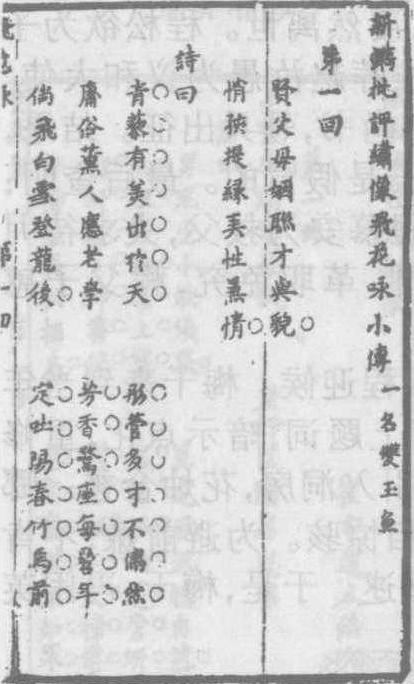 新鐫批評繡像飛花咏小傳 一名雙玉魚
第一回
賢父母姻聯才與貌
悄挾提緣美性兼情
詩曰
青藜有美出竹天 彤管多才不偶然
庸俗薰人應老學 芳香驚座每髫年
倘飛白雪登龍後 定吐陽春竹馬前